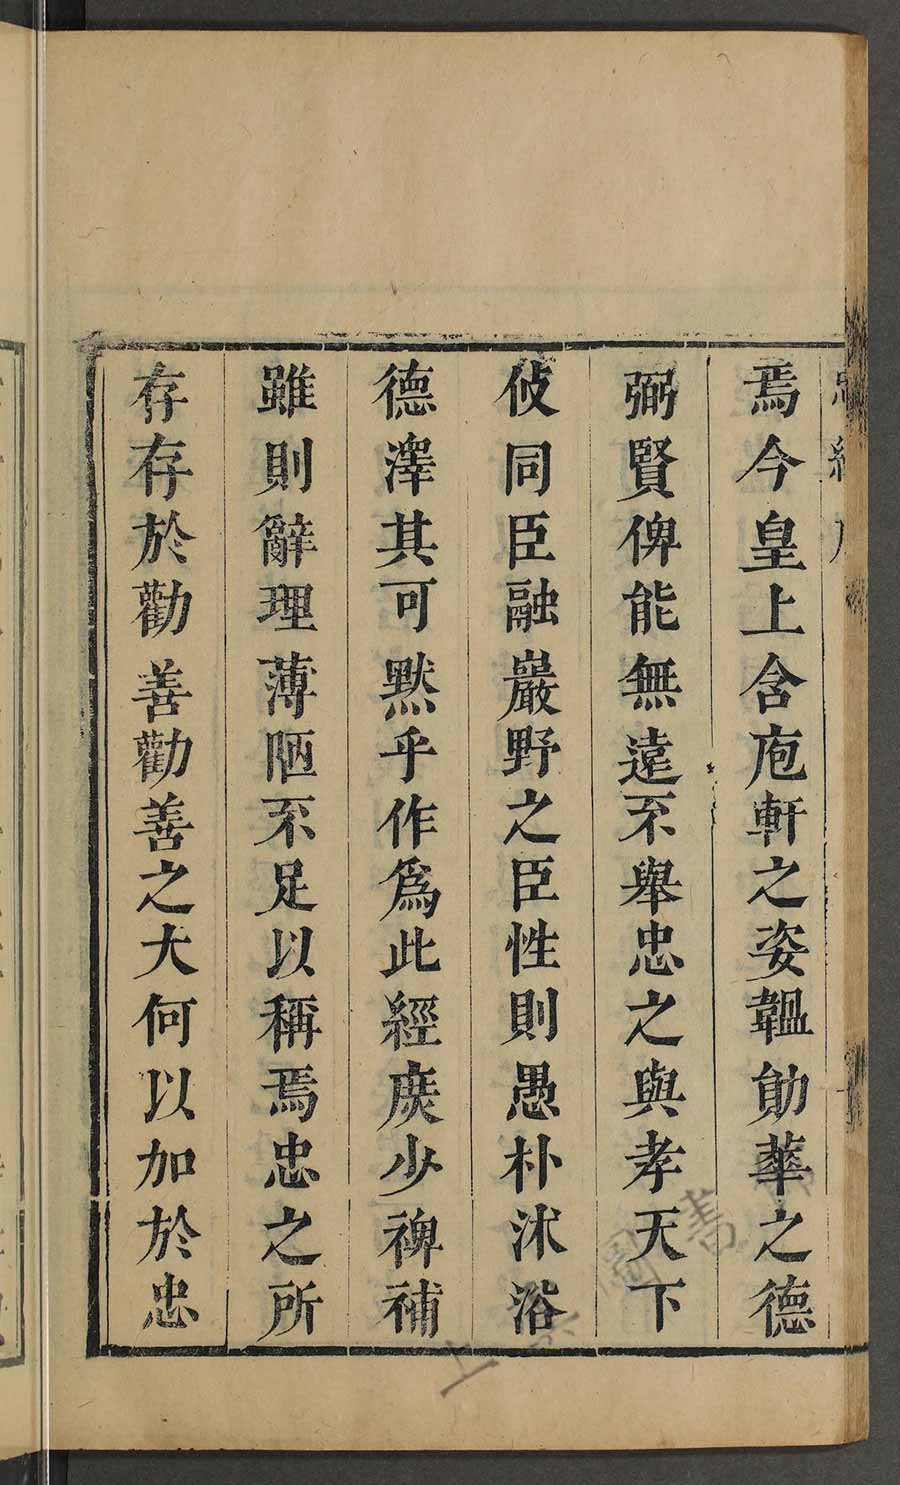 焉今皇上含庖軒之姿韞勛華之德
弼賢俾能無遠不舉忠之與孝天下
攸同臣融巖野之臣性則愚朴沭浴
德澤其可默乎作爲此經庻少裨補
雖則辭理薄陋不足以稱焉忠之所
存存於勸善勸善之大何以加於忠